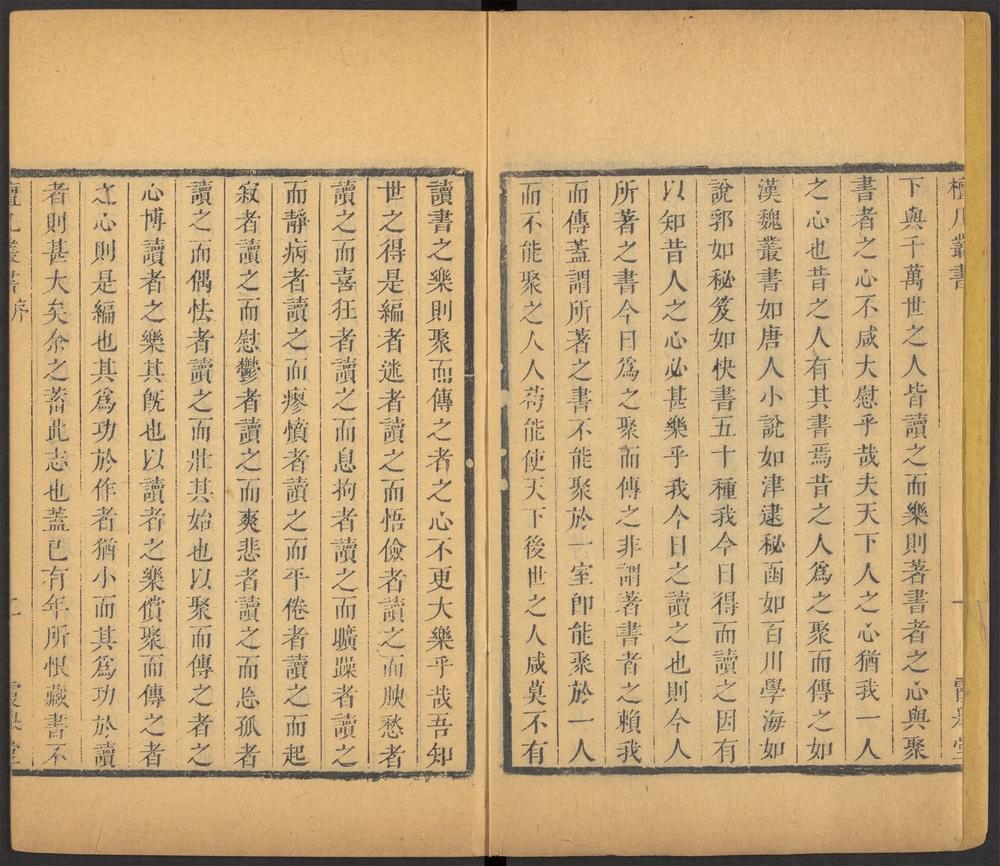 檀几叢書
下與千萬世之人皆讀之而樂則著書者之心與聚
書者之心不咸大慰乎哉夫天下人之心猶我一人
之心也昔之人有其書焉昔之人為之聚而傳之如
漢魏叢書如唐人小說如津逮秘函如百川學海如
說郛如秘笈如快書五十種我今日得而讀之因有
以知昔人之心必甚樂乎我今日之讀之也則今人
所著之書今日為之聚而傳之非謂著書者之賴我
而傳蓋謂所著之書不能聚於一室即能聚於一人
而不能聚之人人苟能使天下後世之人咸莫不有
讀書之樂則聚而傳之者之心不更大樂乎哉吾知
世之得是編者迷者讀之而悟儉者讀之而腴愁者
讀之而喜狂者讀之而息拘者讀之而曠躁者讀之
而靜病者讀之而瘳憤者讀之而平倦者讀之而起
寂者讀之而慰鬱者讀之而爽悲者讀之而怂孤者
讀之而偶怯者讀之而壯其始也以聚而傳之者之
心博讀者之樂其旣也以讀者之樂償聚而傳之者
之心則是編也其為功於作者猶小而其為功於讀
者則甚大矣余之蓄此志也蓋已有年所恨藏書不
檀几叢書序 二 霞舉堂